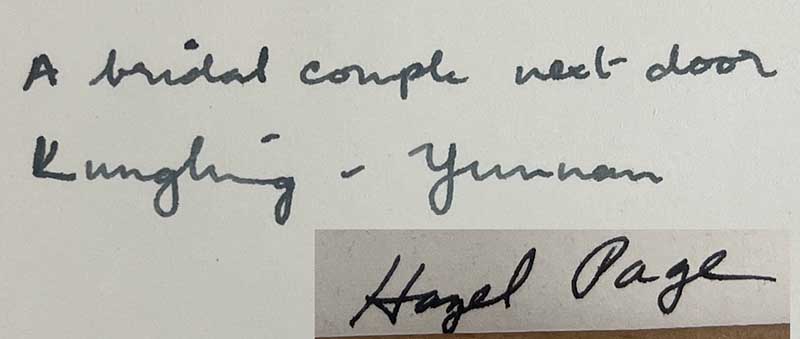 A bridal couple next door
Kungling - Yunnan
Hazel Page